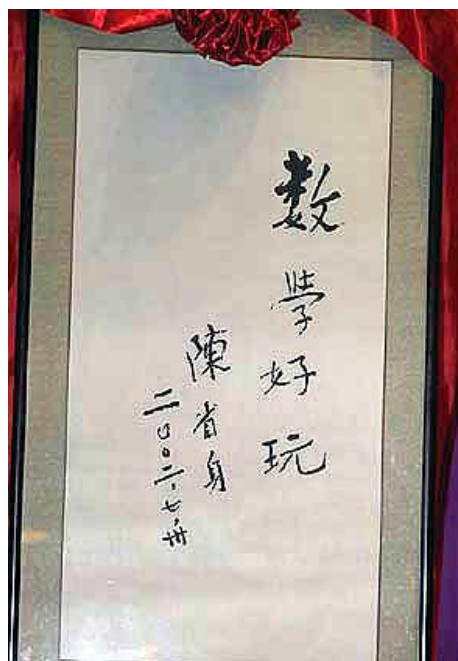 数學好玩
陳省身
二〇〇二·七·卅